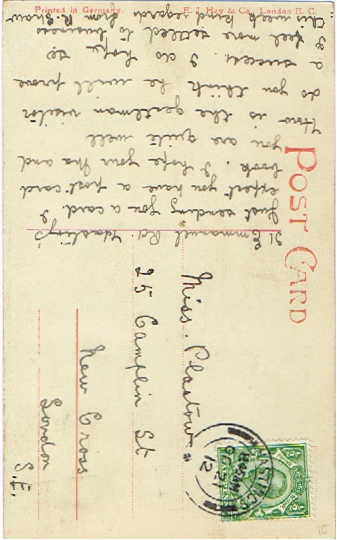 Printed in Germany.
E. J. Hey & Co., London E. C.
POST CARD
31 Emmanuel Rd Hastings
Just sending you a card. I
expect you have a post card
book. I hope your Ma and
you are quite well
How is the gentleman visitor
do you think he will prove
a success. I do hope so
I feel more settled to business
this week kind regards from R. Shaw
Miss. Plastow
25 Camplin St
New Cross
London
S.E.
HASTINGS
OC 21
12